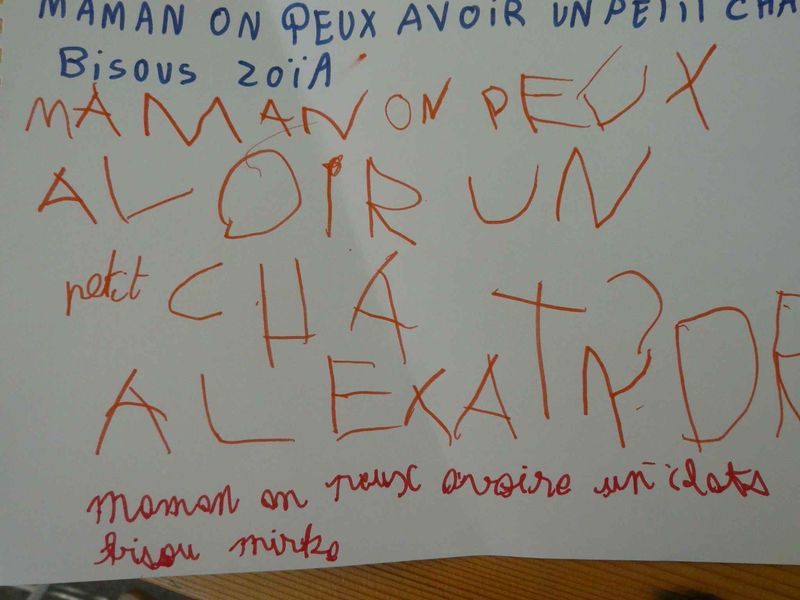 MAMAN ON PEUX AVOIR UN PETIT CHA
BISOUS ZOÏA
MAMAN ON PEUX
ALOIR UN
petit CHAT ?
ALEXANDR
maman on peux avoire un chats
bisou mirko